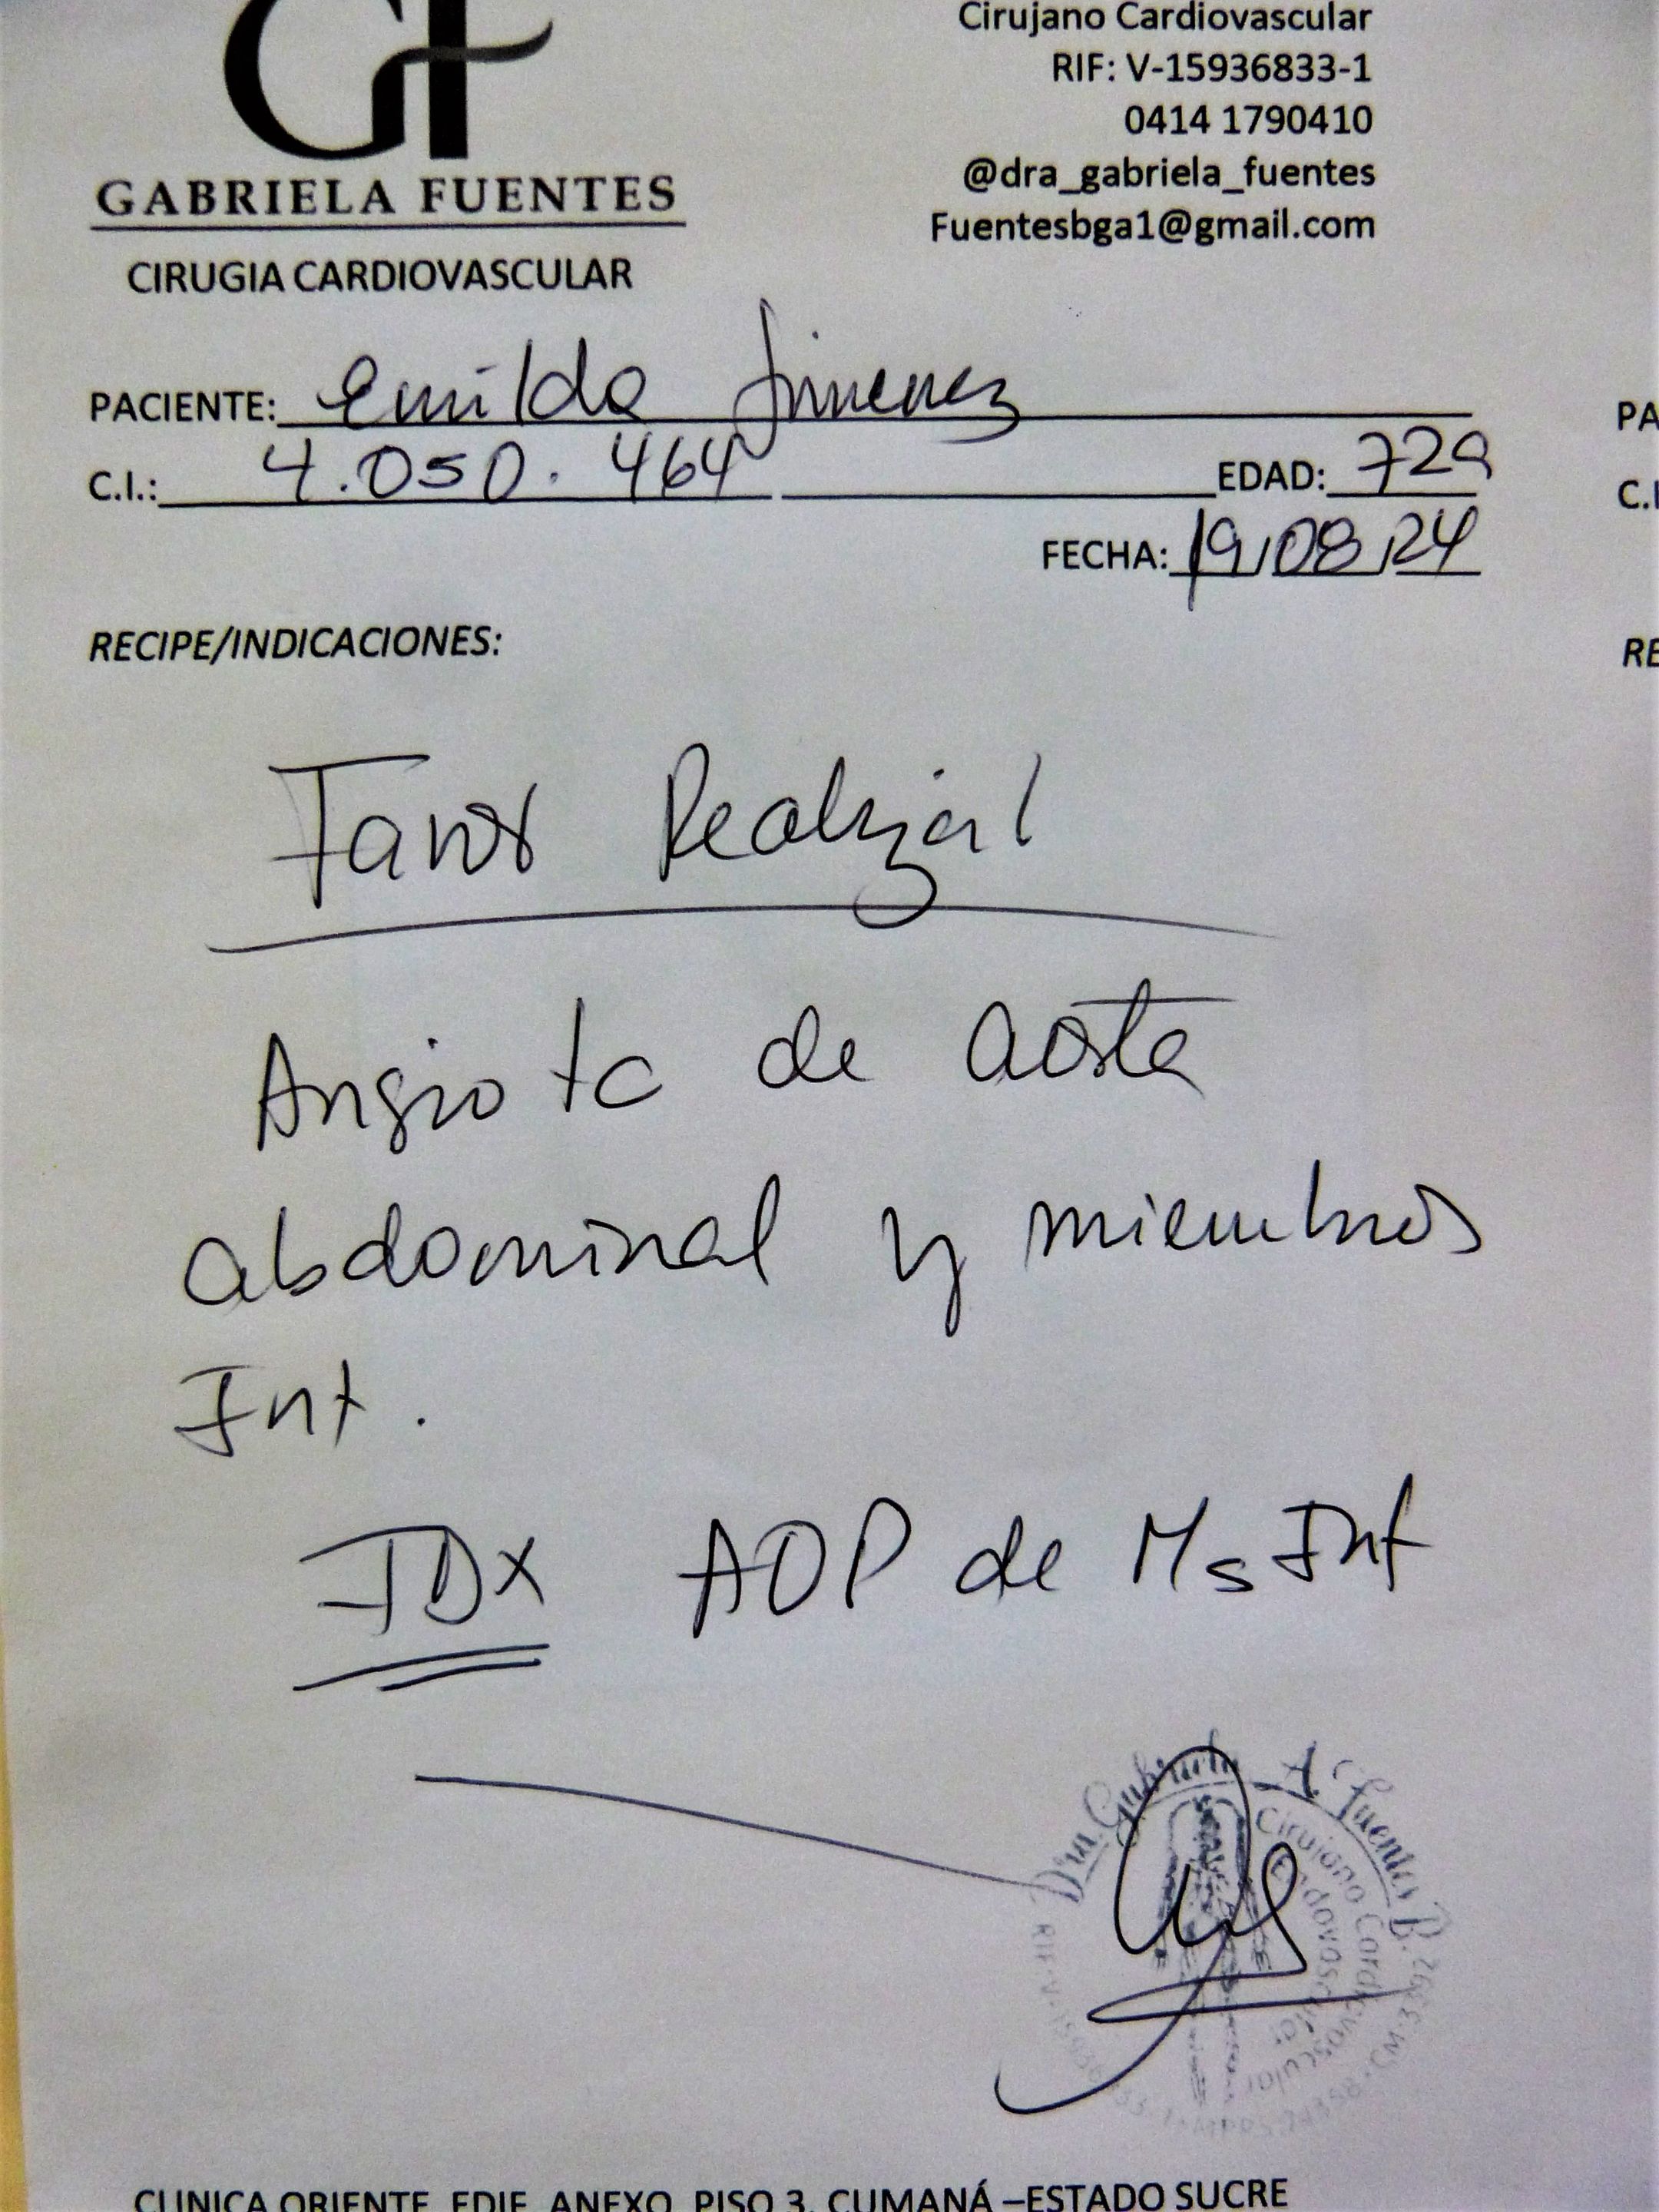 GF
Cirujano Cardiovascular
RIF: V-15936833-1
0414 1790410
@dra_gabriela_fuentes
Fuentesbga1@gmail.com
GABRIELA FUENTES
CIRUGIA CARDIOVASCULAR
PACIENTE: Emilda Jimenez
C.I.: 4.050.464 EDAD: 72a
FECHA: 19/08/24
RECIPE/INDICACIONES:
Favor Realizar
Angio tc de aorta
abdominal y miembros
Inf.
IDx AOP de Ms Inf
Dra. Gabriela A Fuentes B.
Cirujano Cardiovascular
Endovascular
CLINICA ORIENTE, EDIF. ANEXO, PISO 3. CUMANÁ –ESTADO SUCRE
PA
C.I
RE